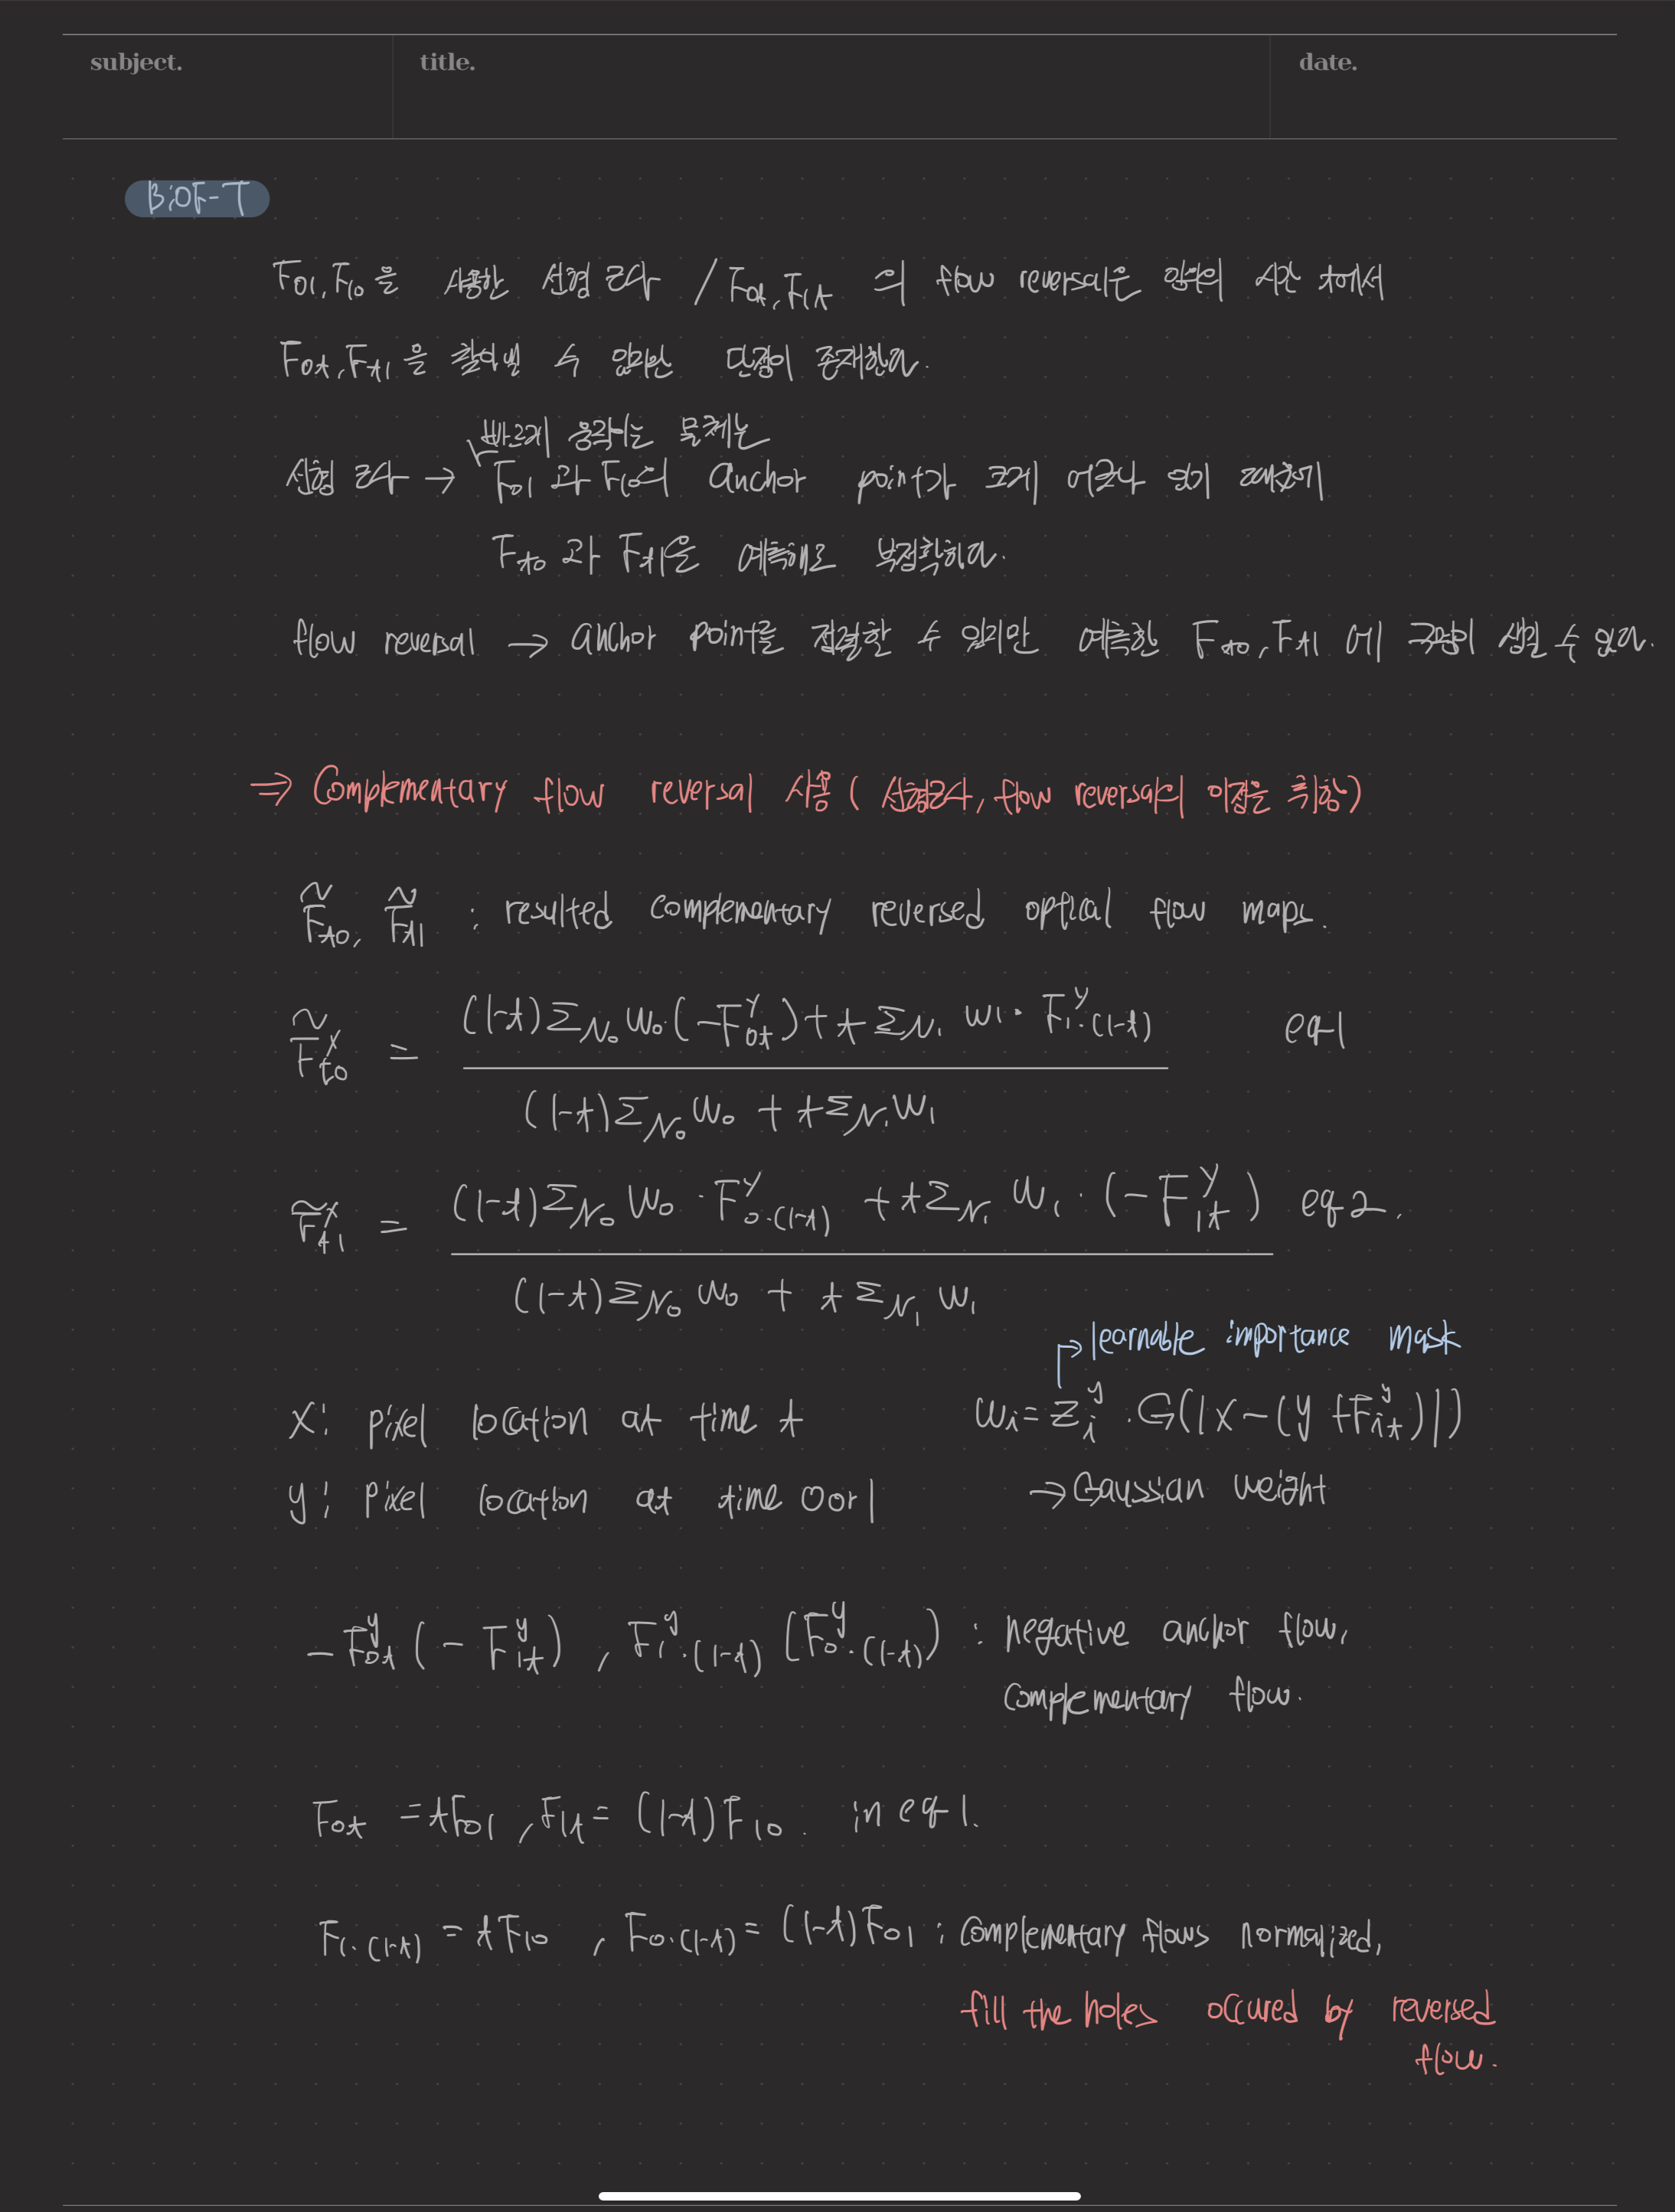 subject. title. date.
BiOF-T
F₀₁, F₁₀을 사용한 선형 근사 / F₀ₜ, F₁ₜ 의 flow reversal은 임의의 시간 t에서
F₀ₜ, Fₜ₁을 찾아낼 수 있지만 단점이 존재한다.
빠르게 움직이는 물체는
선형 근사 → F₀₁ 과 F₁₀의 anchor point가 크게 어긋나 있기 때문에
Fₜ₀ 과 Fₜ₁을 예측해도 부정확하다.
flow reversal → anchor point를 정렬할 수 있지만 예측한 Fₜ₀, Fₜ₁ 에 구멍이 생길 수 있다.
⇒ Complementary flow reversal 사용 ( 선형근사, flow reversal의 이점을 취함)
F̃ₜ₀, F̃ₜ₁ : resulted complementary reversed optical flow maps.
F̃ˣₜ₀ = ((1-t)Σ_N₀ w₀·(-F₀ₜʸ) + t Σ_N₁ w₁· F₁ʸ.(1-t)) / ((1-t)Σ_N₀ w₀ + tΣ_N₁ w₁) eq1
F̃ˣₜ₁ = ((1-t)Σ_N₀ w₀ · F₀ʸ.(1-t) + tΣ_N₁ w₁ · (-F₁ₜʸ)) / ((1-t)Σ_N₀ w₀ + tΣ_N₁ w₁) eq2.
→ learnable importance mask
x: pixel location at time t wᵢ = zᵢʸ · G(|x-(y+Fᵢₜʸ)|)
y: pixel location at time 0 or 1 → Gaussian weight
-F₀ₜʸ (-F₁ₜʸ) , F₁ʸ.(1-t) (F₀ʸ.(1-t)) : negative anchor flow,
complementary flow.
F₀ₜ = tF₀₁ , F₁ₜ = (1-t)F₁₀ . in eq1.
F₁.(1-t) = tF₁₀ , F₀.(1-t) = (1-t)F₀₁ : complementary flows normalized,
fill the holes occured by reversed
flow.